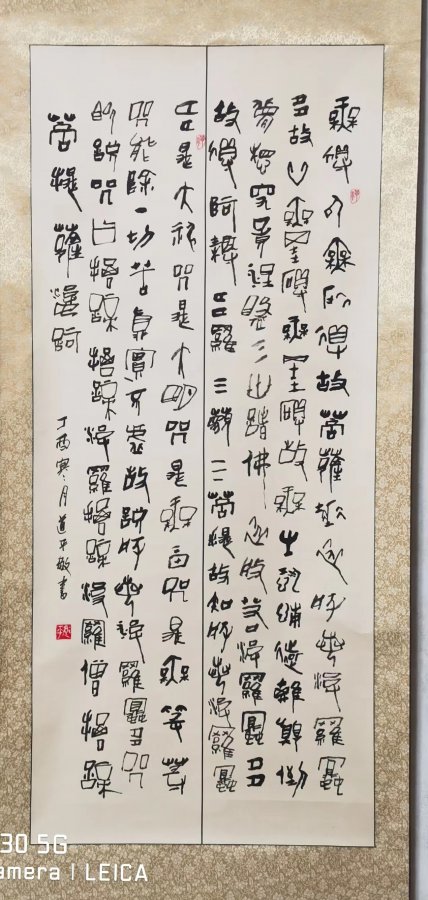 無得以無所得故菩薩埵依般若波羅蜜
多故心無罣礙無罣礙故無有恐怖遠離顛倒
夢想究竟涅槃三世諸佛依般若波羅蜜多
故得阿耨多羅三藐三菩提故知般若波羅蜜
多是大神咒是大明咒是無上咒是無等等
咒能除一切苦真實不虛故說般若波羅蜜多咒
即說咒曰揭諦揭諦波羅揭諦波羅僧揭諦
菩提薩婆訶
丁酉寒月道平敬書
30 5G
amera | LEICA